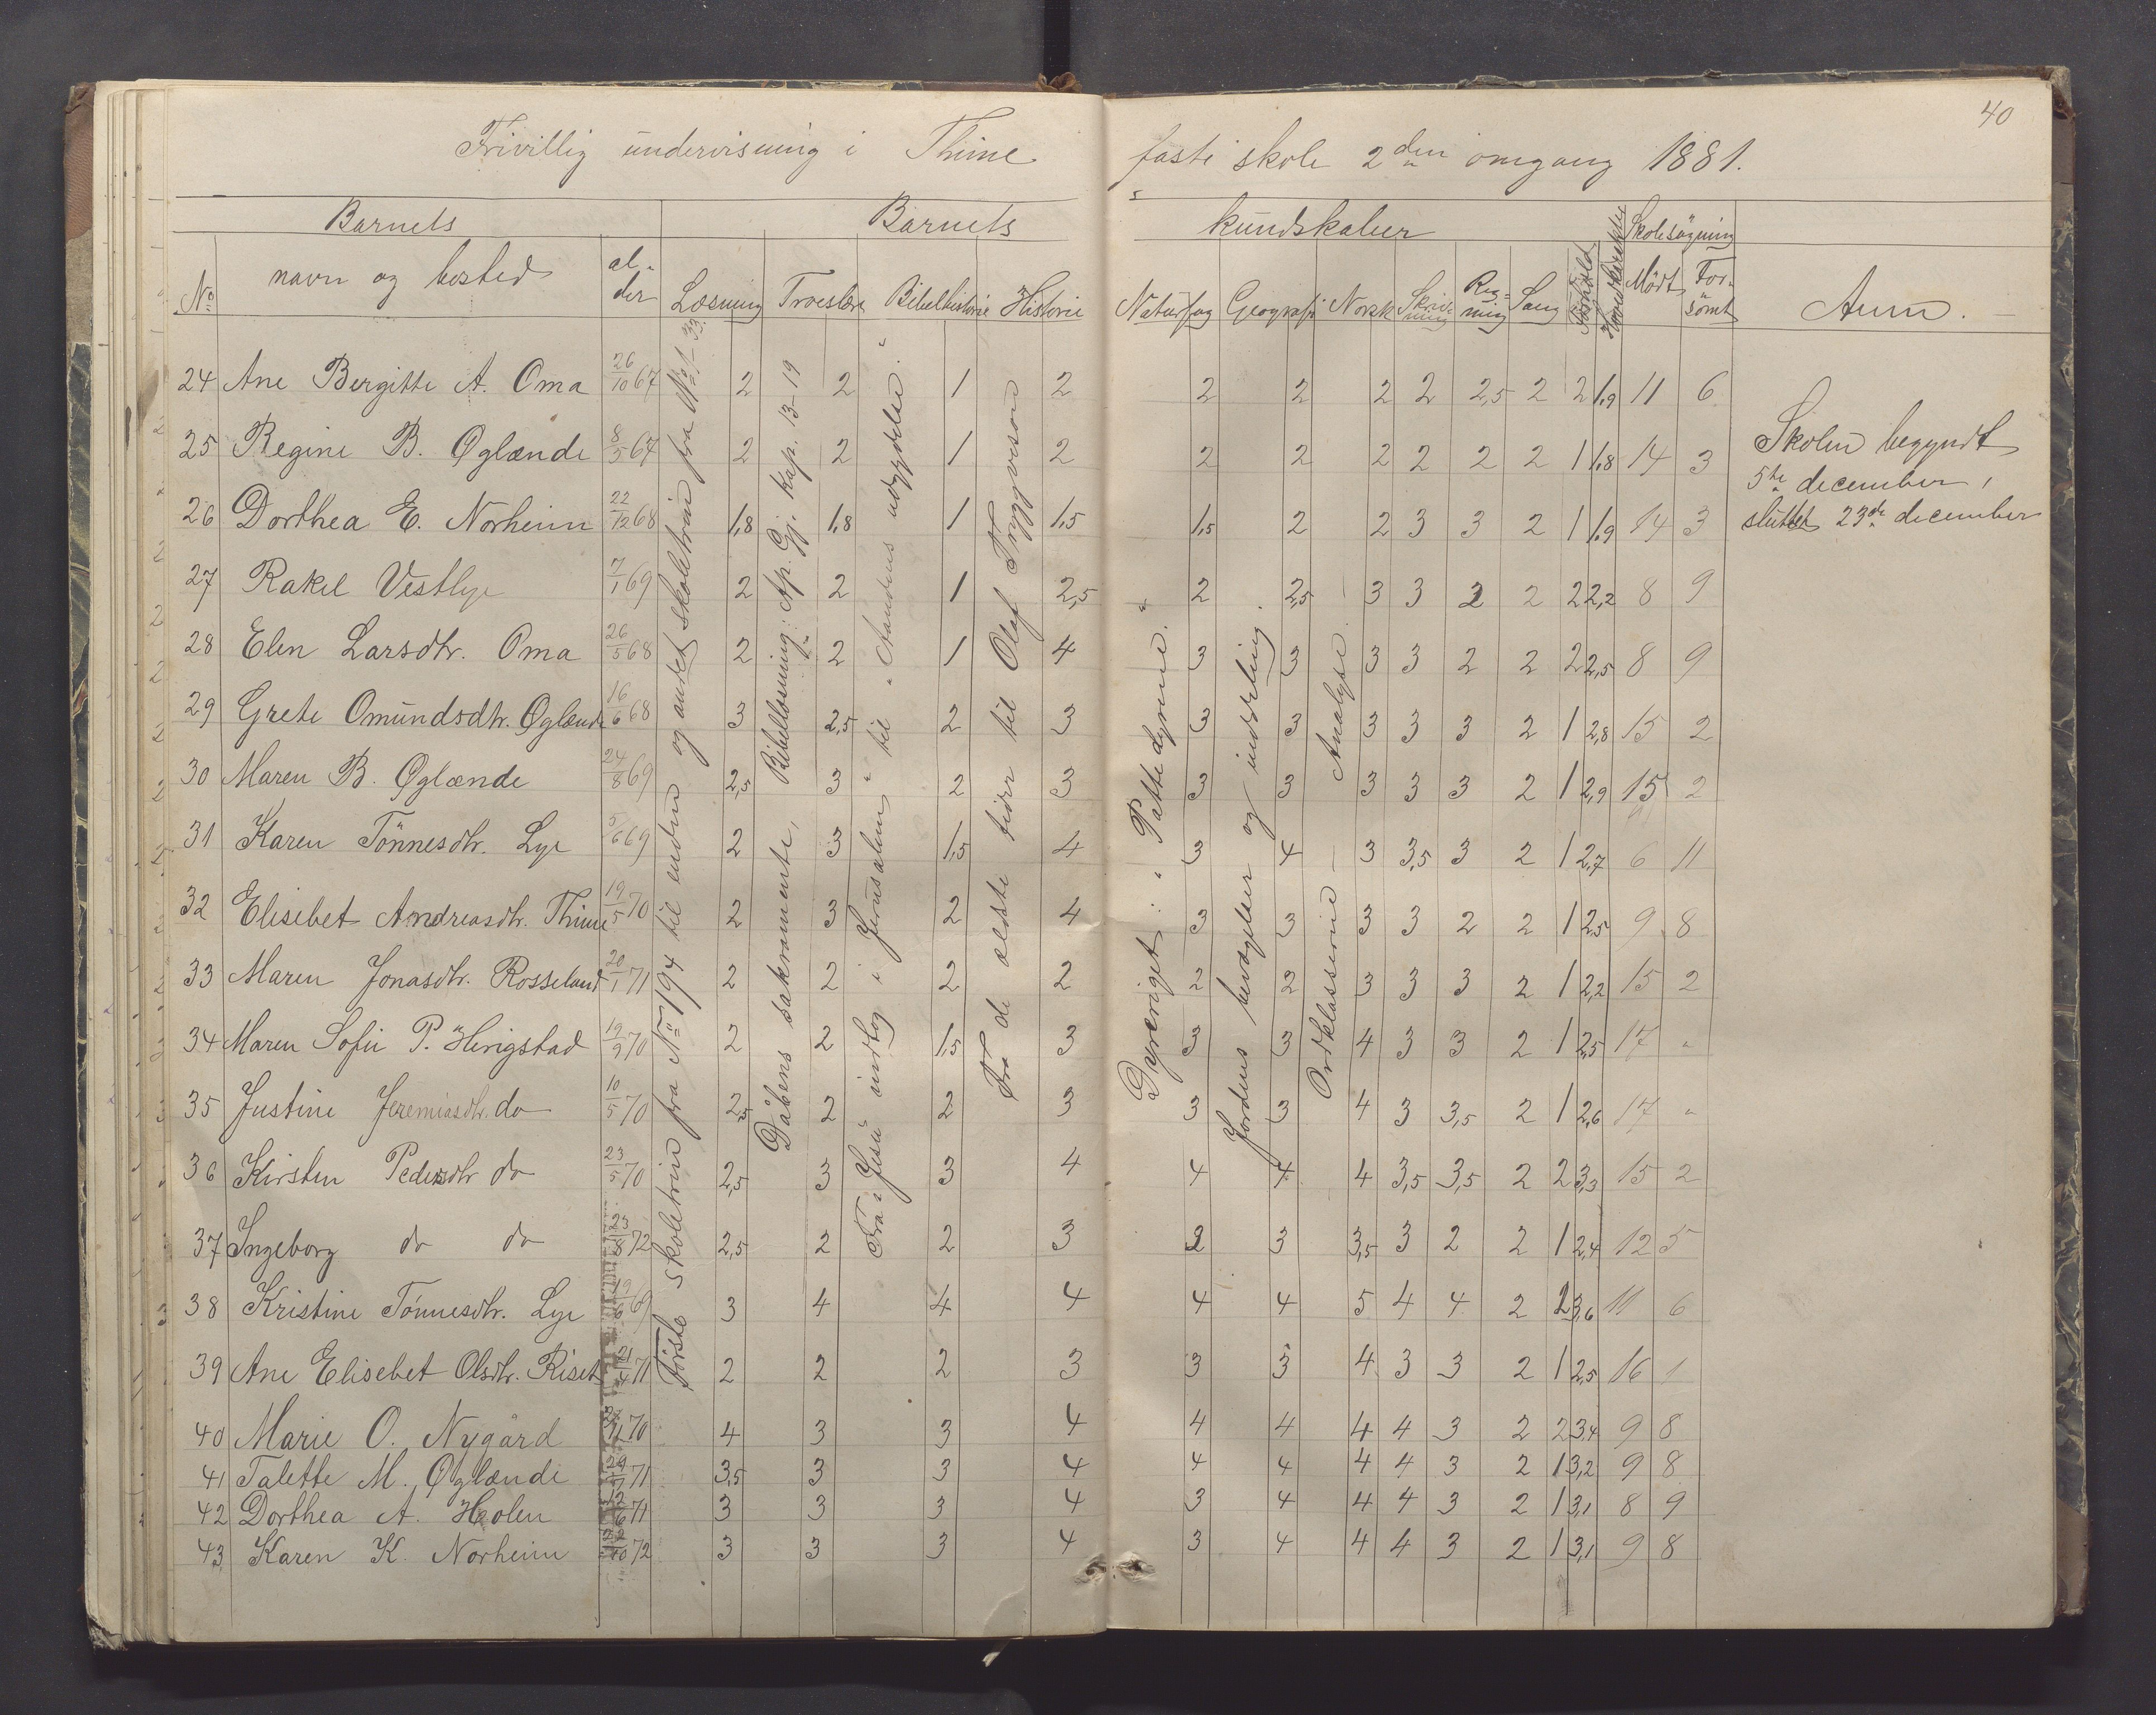 40
Frivillig undervisning i Thime faste skole 2den omgang 1881.
Barnets Barnets kundskaber Skolesøgning
No navn og bosted alder Læsning Troeslære Bibelhistorie Historie Naturfag Geografi Norsk Skrivning Regning Sang Forhold Hovedkarakter Mödt Forsömt Anm.
24 Ane Bergitte A. Oma 26/10 67 2 2 1 2 2 2 2 2 2,5 2 2 1,9 11 6
25 Regine B. Øglænde 8/5 67 2 2 1 2 2 2 2 2 2 2 1 1,8 14 3
26 Dorthea E. Norheim 22/12 68 1,8 1,8 1 1,5 1,5 2 2 3 3 2 1 1,9 14 3
27 Rakel Vestlye 7/1 69 2 2 1 2,5 2 2,5 3 3 2 2 2 2,2 8 9
28 Elen Larsdtr. Oma 26/5 68 2 2 1 4 3 3 3 3 2 2 2 2,5 8 9
29 Grete Omundsdtr. Øglænde 16/6 68 3 2,5 2 3 3 3 3 3 3 2 1 2,8 15 2
30 Maren B. Øglænde 24/8 69 2,5 3 2 3 3 3 3 3 3 2 1 2,9 15 2
31 Karen Tönnesdtr. Lye 5/6 69 2 3 1,5 4 3 4 3 3,5 3 2 1 2,7 6 11
32 Elisebet Andreasdtr. Thime 19/5 70 2 3 2 4 3 3 3 3 2 2 1 2,5 9 8
33 Maren Jonasdtr. Rosseland 20/1 71 2 2 2 2 2 2 3 3 3 2 1 2,2 15 2
34 Maren Sofie P. Herigstad 19/9 70 2 2 1,5 3 3 3 4 3 3 2 1 2,5 17 "
35 Justine Jeremiasdtr. do 10/5 70 2,5 2 2 3 3 3 4 3 3,5 2 1 2,6 17 "
36 Kirsten Pedersdtr do 23/5 70 2,5 3 3 4 4 4 4 3,5 3,5 2 2 3,3 15 2
37 Ingeborg do do 23/8 72 2,5 2 2 3 2 3 3,5 3 2 2 1 2,4 12 5
38 Kristine Tönnesdtr. Lye 19/6 69 3 4 4 4 4 4 5 4 4 2 2 3,6 11 6
39 Ane Elisebet Olsdtr. Riset 21/4 71 2 2 2 3 3 3 4 3 3 2 1 2,5 16 1
40 Marie O. Nygård 70 4 3 3 4 4 4 4 4 3 2 2 3,4 9 8
41 Talette M. Øglænde 71 3,5 3 3 4 4 4 4 4 3 2 1 3,2 9 8
42 Dorthea A. Holen 71 3 3 3 4 3 4 4 4 3 2 1 3,1 8 9
43 Karen K. Norheim 72 3 3 3 4 3 4 4 4 3 2 1 3,1 9 8
Förste skoletrin fra No 194 til enden og andet skoletrin fra No 1-33.
Dåbens sakramente, Bibellæsning: Ap. Gj. kap. 13-19
Fra "Jesu indtog i Jerusalem" til "Aandens udgydelse."
Fra de ældste tider til Olaf Trygvesön
Dyreriget: "Pattedyrene."
Jordens bevægelser og inddeling.
Ordklasserne - Analyse.
Skolen begyndt
5te december,
sluttet 23de december